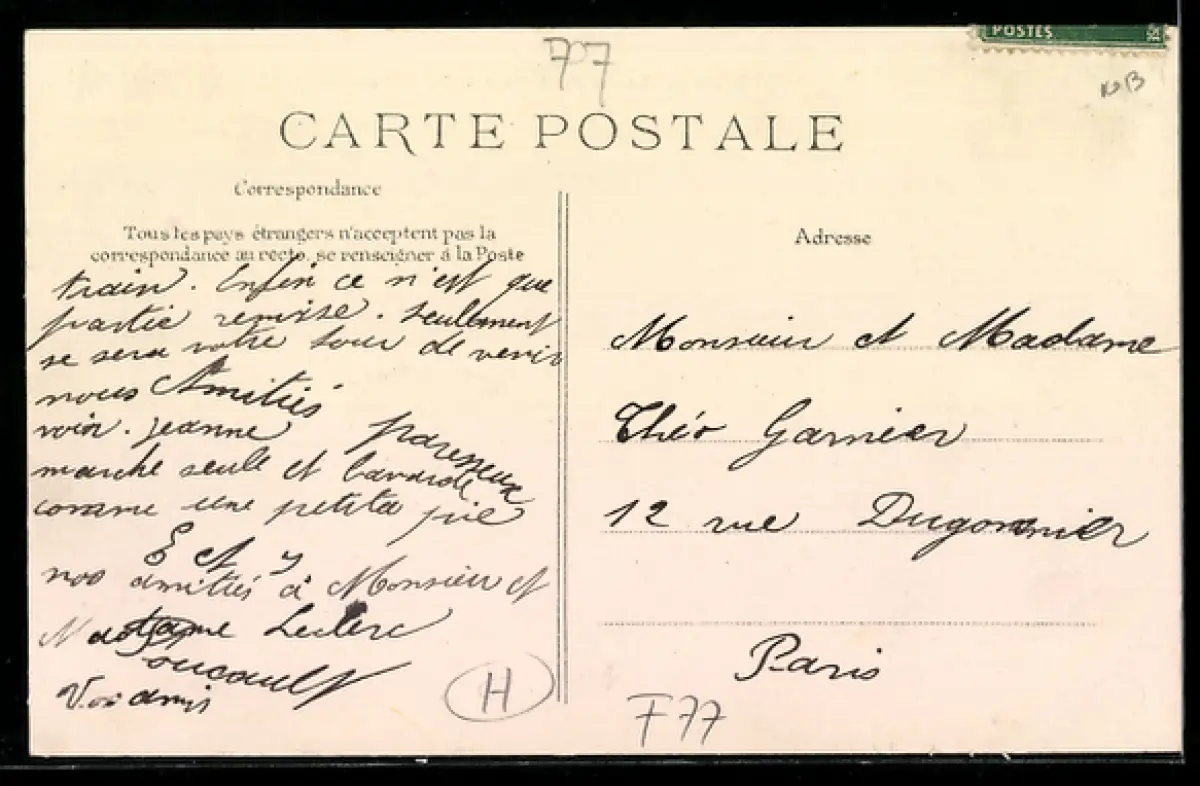 POSTES
F77
CARTE POSTALE
Correspondance
Tous les pays étrangers n'acceptent pas la
correspondance au recto, se renseigner à la Poste
train. Enfin ce n'est que
partie remise. Seulement
se sera votre tour de venir
nous Amitiés
voir. Jeanne paresseux
marche seule et bavarde
comme une petite pie
E et y
nos amitiés à Monsieur et
Madame Leclerc
Vos amis
H
Adresse
Monsieur et Madame
Théo Garnier
12 rue Dugommier
Paris
F77